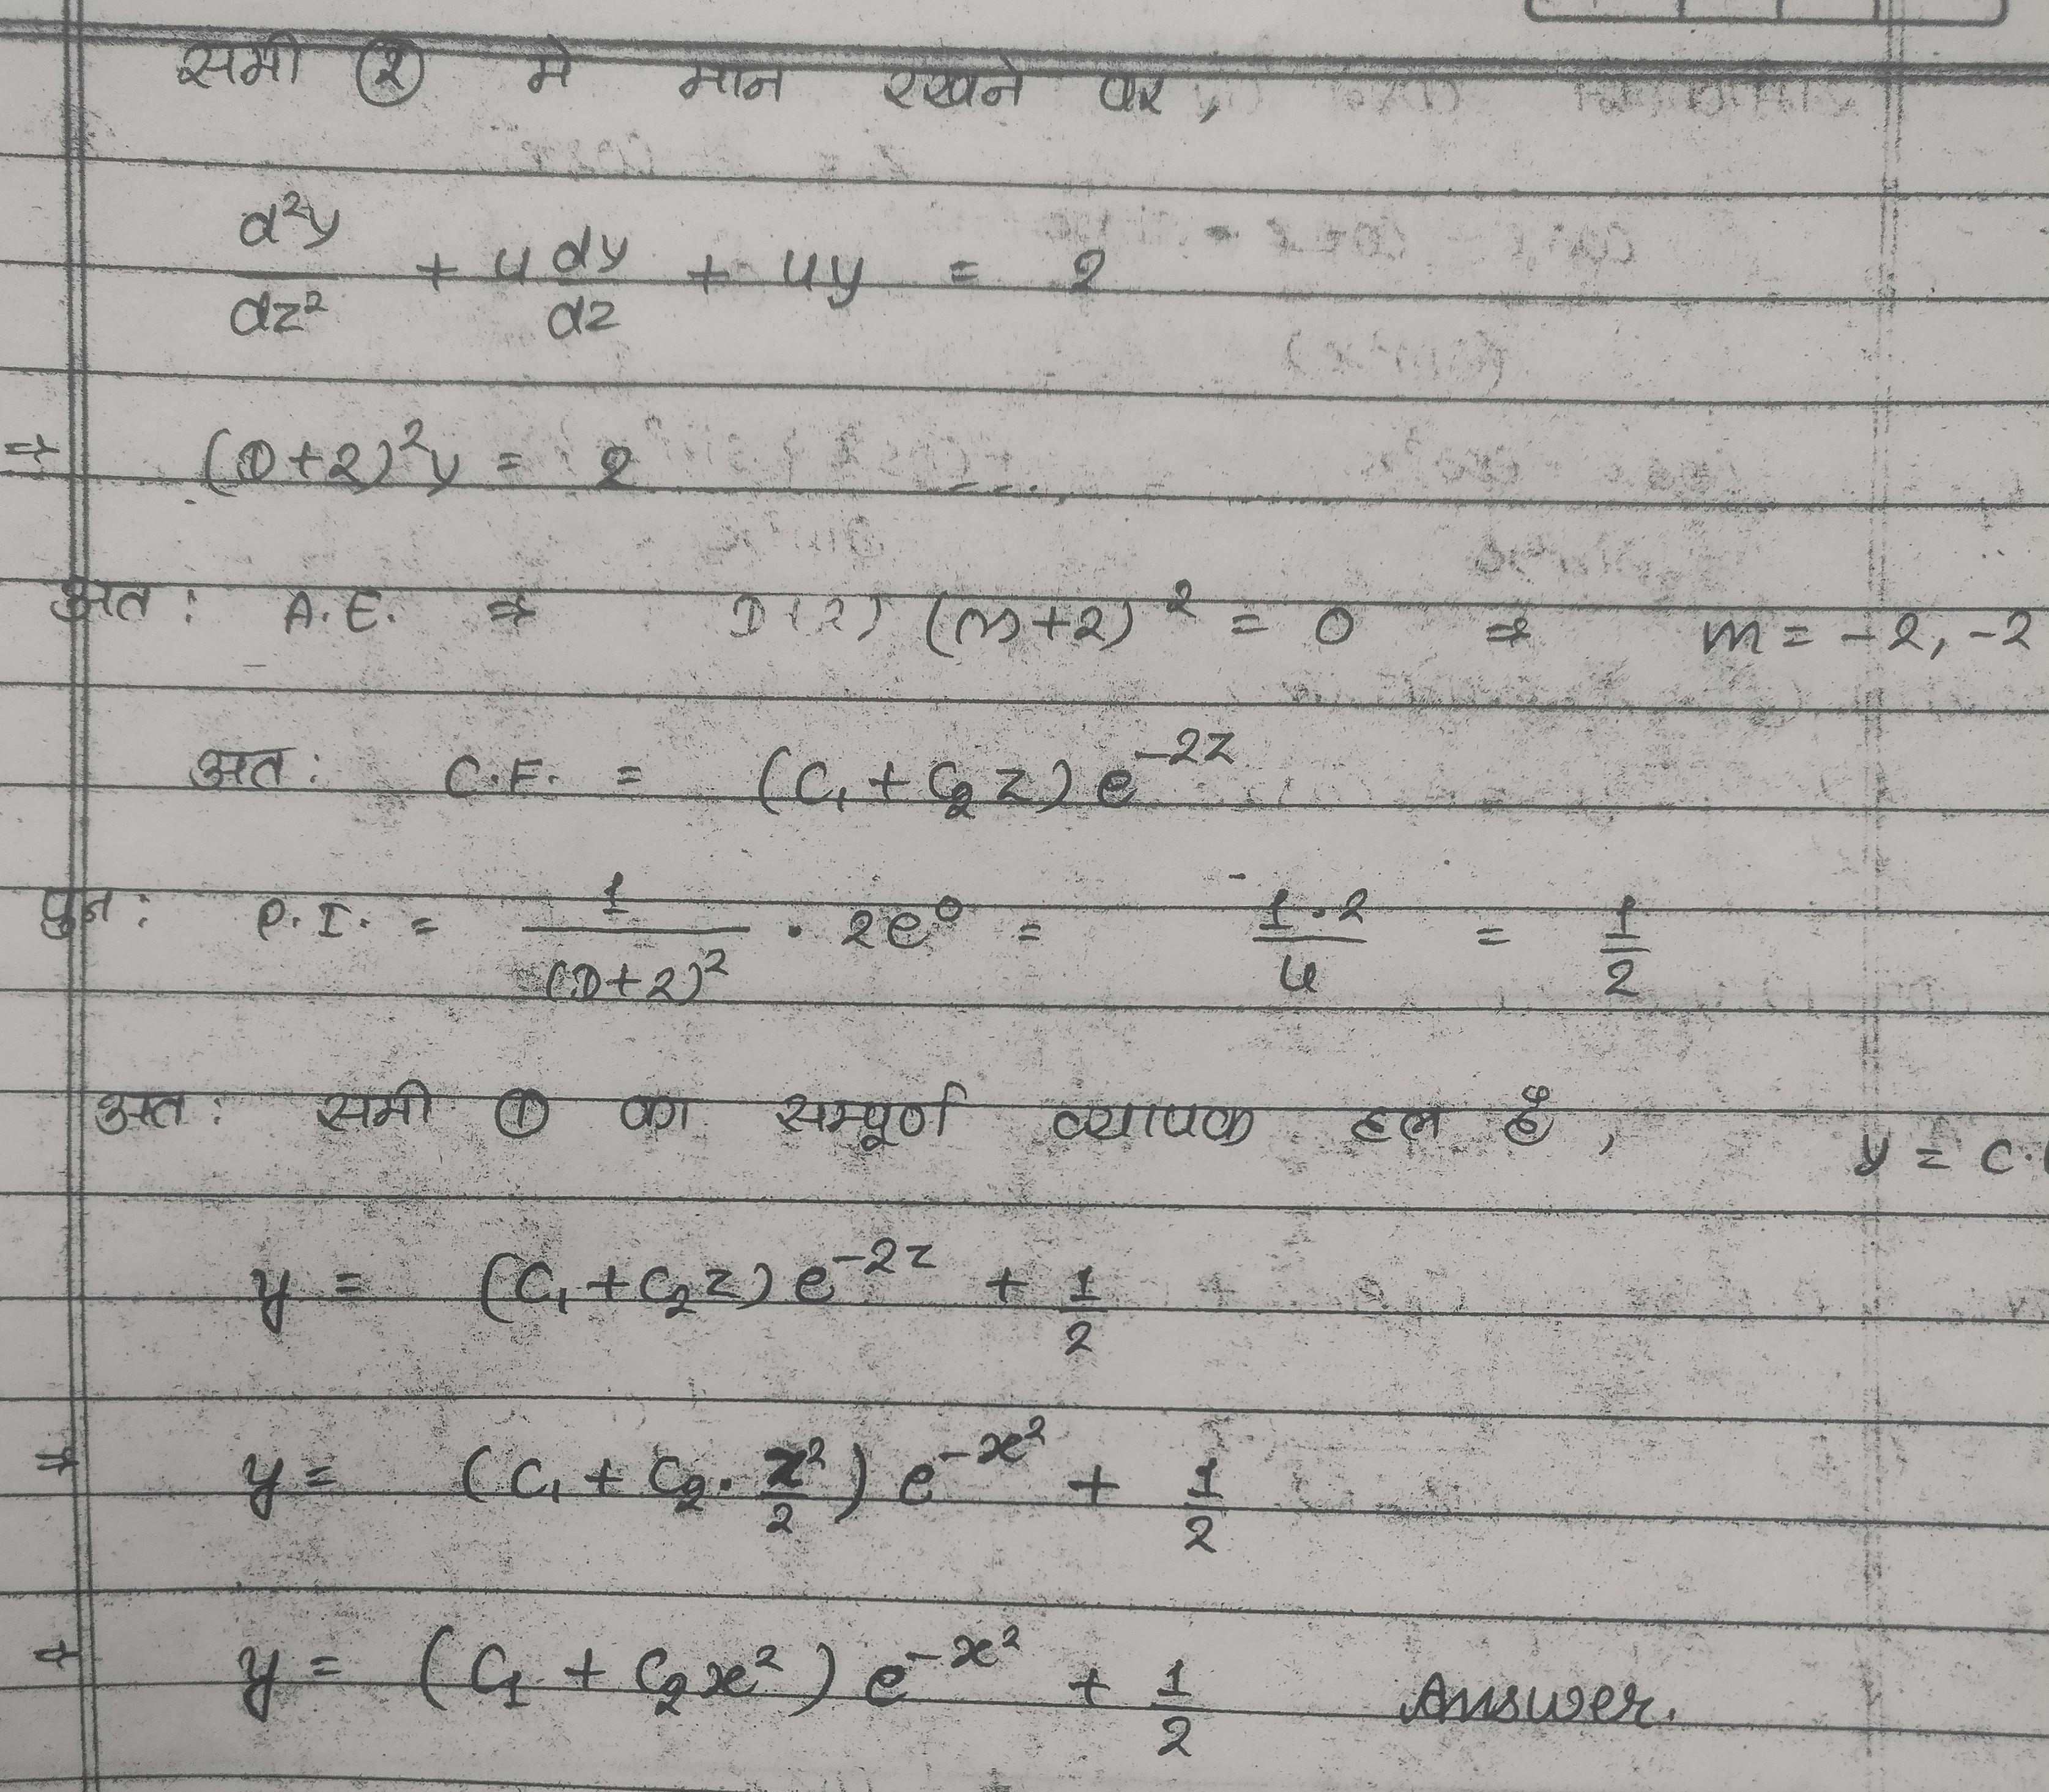 समी ② मे मान रखने पर,
d²y/dz² + 4 dy/dz + 4y = 2
⇒ (D+2)²y = 2
अत: A.E. ⇒ (m+2)² = 0 ⇒ m = -2, -2
अत: C.F. = (C₁ + C₂ z) e^-2z
पुन: P.I. = 1/(D+2)² · 2e⁰ = 1·2/4 = 1/2
अत: समी ① का सम्पूर्ण व्यापक हल है, y = C.
y = (C₁ + C₂z) e^-2z + 1/2
⇒ y = (C₁ + C₂. x²/2) e^-x² + 1/2
⇒ y = (C₁ + C₂x²) e^-x² + 1/2 Answer.